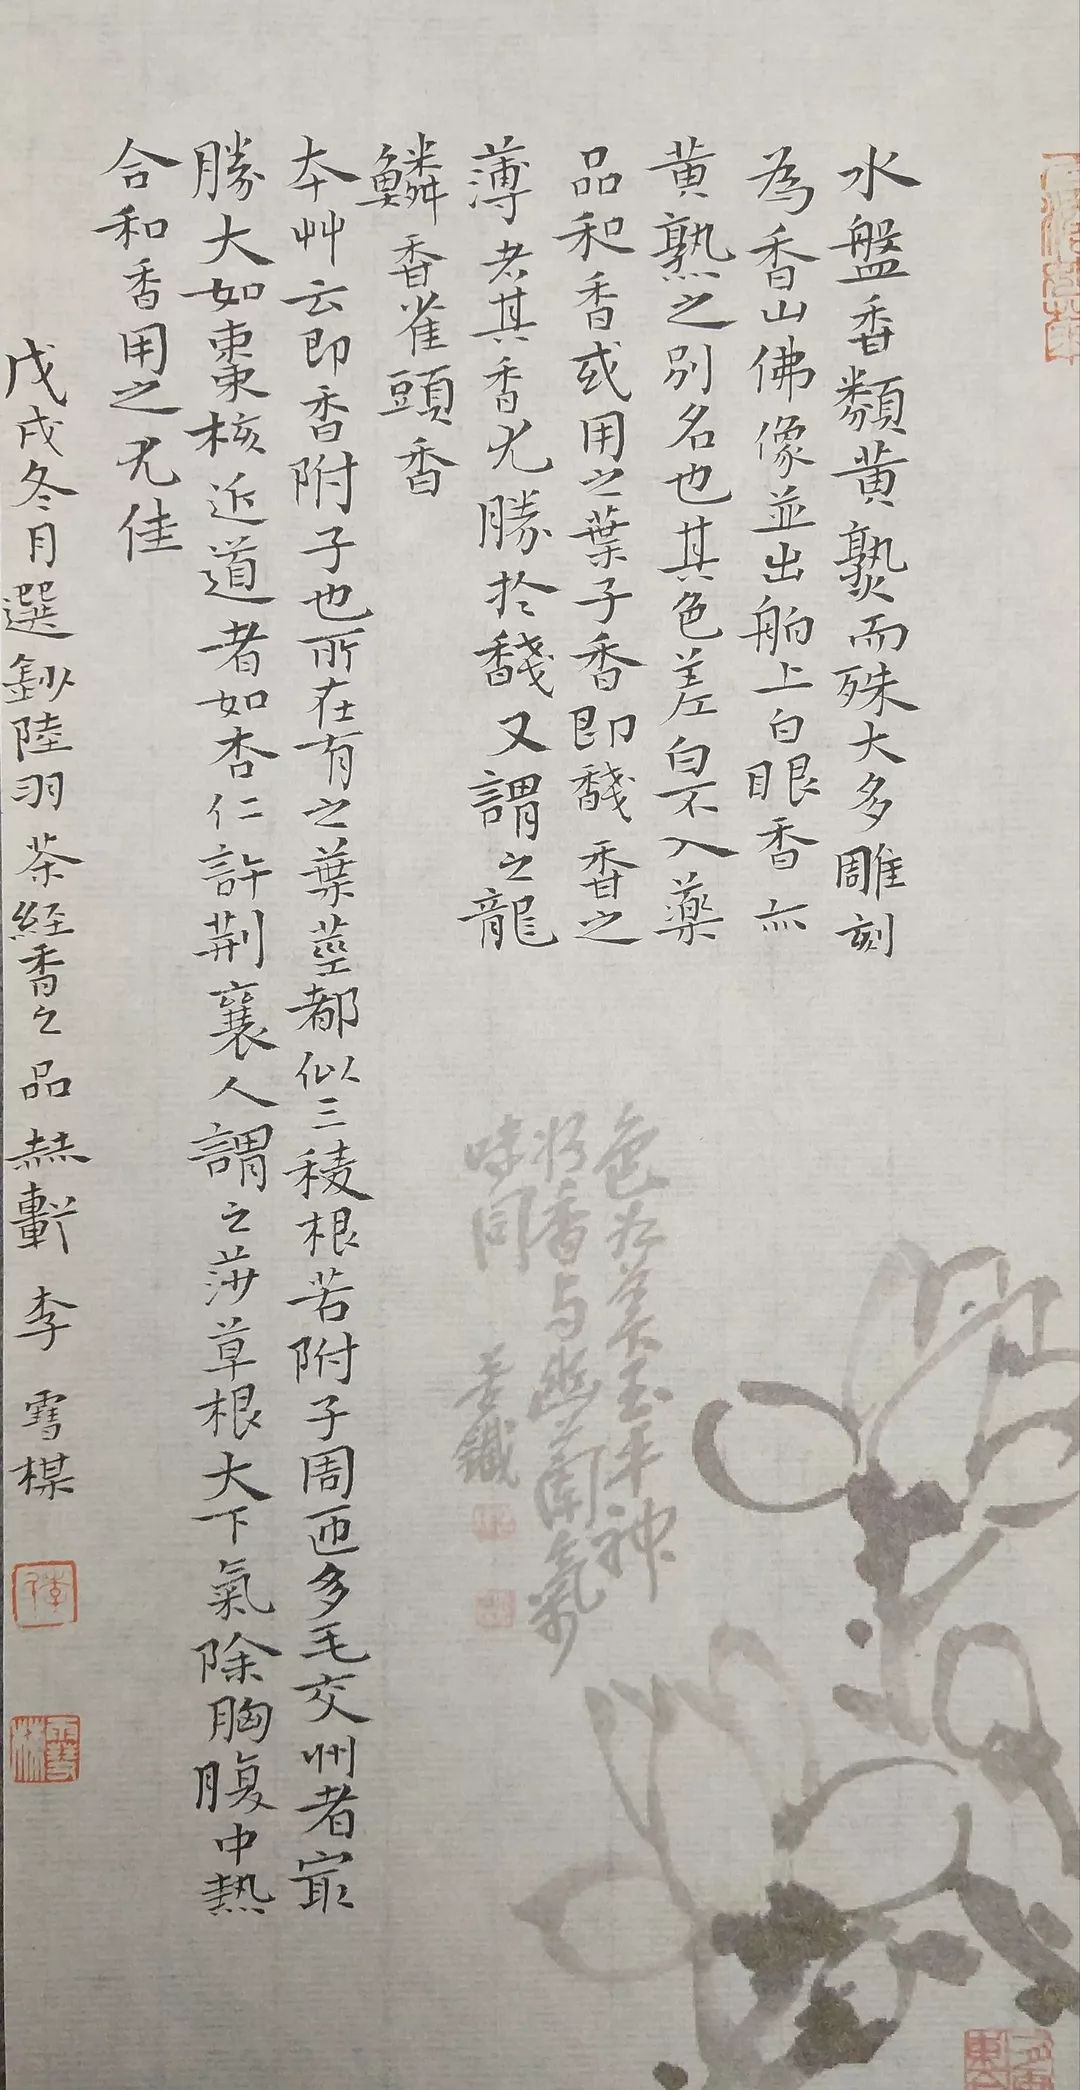 水盤香類黄熟而殊大多雕刻
為香山佛像並出舶上白眼香亦
黄熟之别名也其色差白不入藥
品和香或用之葉子香即馢香之
薄者其香尤勝於馢又謂之龍
鱗香雀頭香
本艸云即香附子也所在有之葉莖都似三稜根若附子周匝多毛交州者冣
勝大如棗核近道者如杏仁許荆襄人謂之莎草根大下氣除胸腹中熱
合和香用之尤佳
戊戌冬月選鈔陸羽茶経香之品赫軒李雪楳
色为美玉平神
好香与幽蘭氣
味同
苦鐵